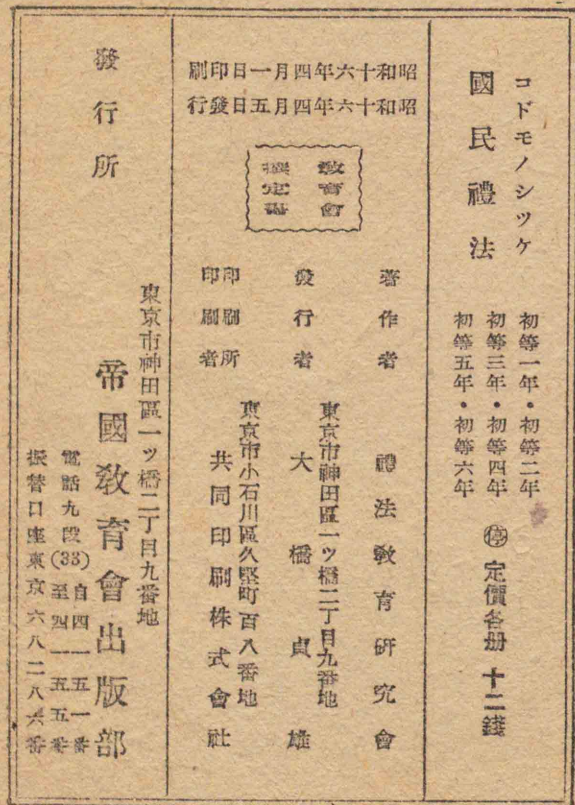 コドモノシツケ
國民禮法
初等一年・初等二年
初等三年・初等四年
初等五年・初等六年
停 定價各册 十二錢
昭和十六年四月一日印刷
昭和十六年四月五日發行
教育會
撰定書
著作者 禮法教育研究會
東京市神田區一ッ橋二丁目九番地
發行者 大橋貞雄
東京市小石川區久堅町百八番地
印刷所
印刷者 共同印刷株式會社
發行所
東京市神田區一ッ橋二丁目九番地
帝國教育會出版部
電話九段(33)自四一五一番
至四一五五番
振替口座東京六八二八六番